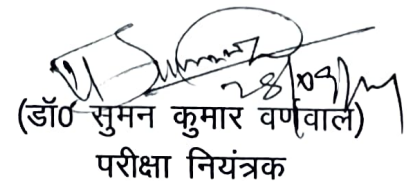 28/09/24
(डॉ० सुमन कुमार वर्णवाल)
परीक्षा नियंत्रक